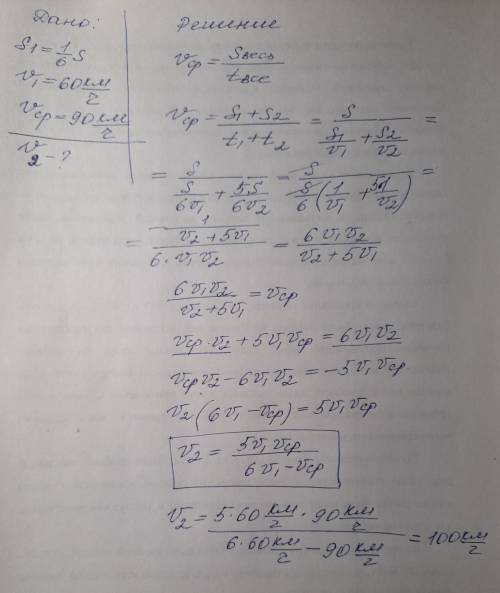 Дано:
S1 = 1/6 S
v1 = 60 км/ч
vср = 90 км/ч
v2 - ?
Решение
vср = Sвесь / tвсе
vср = (S1 + S2) / (t1 + t2) = S / (S1/v1 + S2/v2) =
= S / (S/6v1 + 5S/6v2) = S / (S/6 (1/v1 + 5·1/v2)) =
= 1 / ((v2 + 5v1) / (6·v1v2)) = 6v1v2 / (v2 + 5v1)
6v1v2 / (v2 + 5v1) = vср
vср·v2 + 5v1vср = 6v1v2
vсрv2 - 6v1v2 = -5v1vср
v2(6v1 - vср) = 5v1vср
v2 = 5v1vср / (6v1 - vср)
v2 = (5·60 км/ч · 90 км/ч) / (6·60 км/ч - 90 км/ч) = 100 км/ч